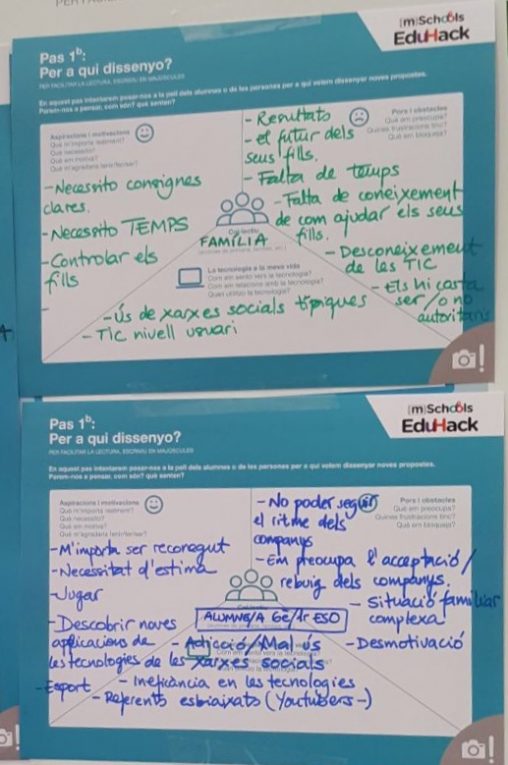 (m)Schools
EduHack
Pas 1ᵇ:
Per a qui dissenyo?
PER FACILITAR LA LECTURA, ESCRIVIU EN MAJÚSCULES
En aquest pas intentarem posar-nos a la pell dels alumnes o de les persones per a qui volem dissenyar noves propostes.
Parem-nos a pensar, com són? què senten?
Aspiracions i motivacions
Què m'importa realment?
Què necessito?
Què em motiva?
Què m'agradaria tenir/teniser?
-Necessito consignes
clares.
-Necessito TEMPS
-Controlar els
fills
-
Pors i obstacles
Què em preocupa?
Quines frustracions tinc?
Què em bloqueja?
- Resultats
- el futur dels
seus fills.
- Falta de temps
- Falta de coneixement
de com ajudar els seus
fills.
- Desconeixement
de les TIC
- Els hi costa
ser /o no
autoritaris
Col·lectiu
FAMÍLIA
La tecnologia a la meva vida
Com em sento vers la tecnologia?
Com em relaciono amb la tecnologia?
Quan utilitzo la tecnologia?
-Ús de xarxes socials típiques
- TIC nivell usuari
(m)Schools
EduHack
Pas 1ᵇ:
Per a qui dissenyo?
PER FACILITAR LA LECTURA, ESCRIVIU EN MAJÚSCULES
En aquest pas intentarem posar-nos a la pell dels alumnes o de les persones per a qui volem dissenyar noves propostes.
Parem-nos a pensar, com són? què senten?
Aspiracions i motivacions
Què m'importa realment?
Què necessito?
Què em motiva?
Què m'agradaria
-M'importa ser reconegut
-Necessitat d'estima
-Jugar
-Descobrir noves
aplicacions de
les tecnologies
-Esport
Pors i obstacles
Què em preocupa?
Quines frustracions tinc?
Què em bloqueja?
- No poder seguir
el ritme dels
companys
- Em preocupa l'acceptació/
rebuig dels companys.
- Situació familiar
complexa
- Desmotivació
ALUMNE/A 6è/1r ESO
- Adicció/Mal ús
de les xarxes socials
- Ineficància en les tecnologies
- Referents esbiaixats (Youtubers-)